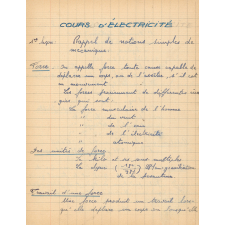 COURS D'ÉLECTRICITÉ
1ère leçon. Rappel de notions simples de
mécanique.
Force: On appelle force toute cause capable de
déplacer un corps, ou de l'arrêter, s'il est
en mouvement.
Les forces proviennent de différentes
qui sont:
La force musculaire de l'homme
" du vent
" de l'eau
" de l'électricité
" atomique
unités de force
le kilo et ses sous multiples
La dyne
Travail d'une force
Une force produit un travail lors
qu'elle déplace son corps